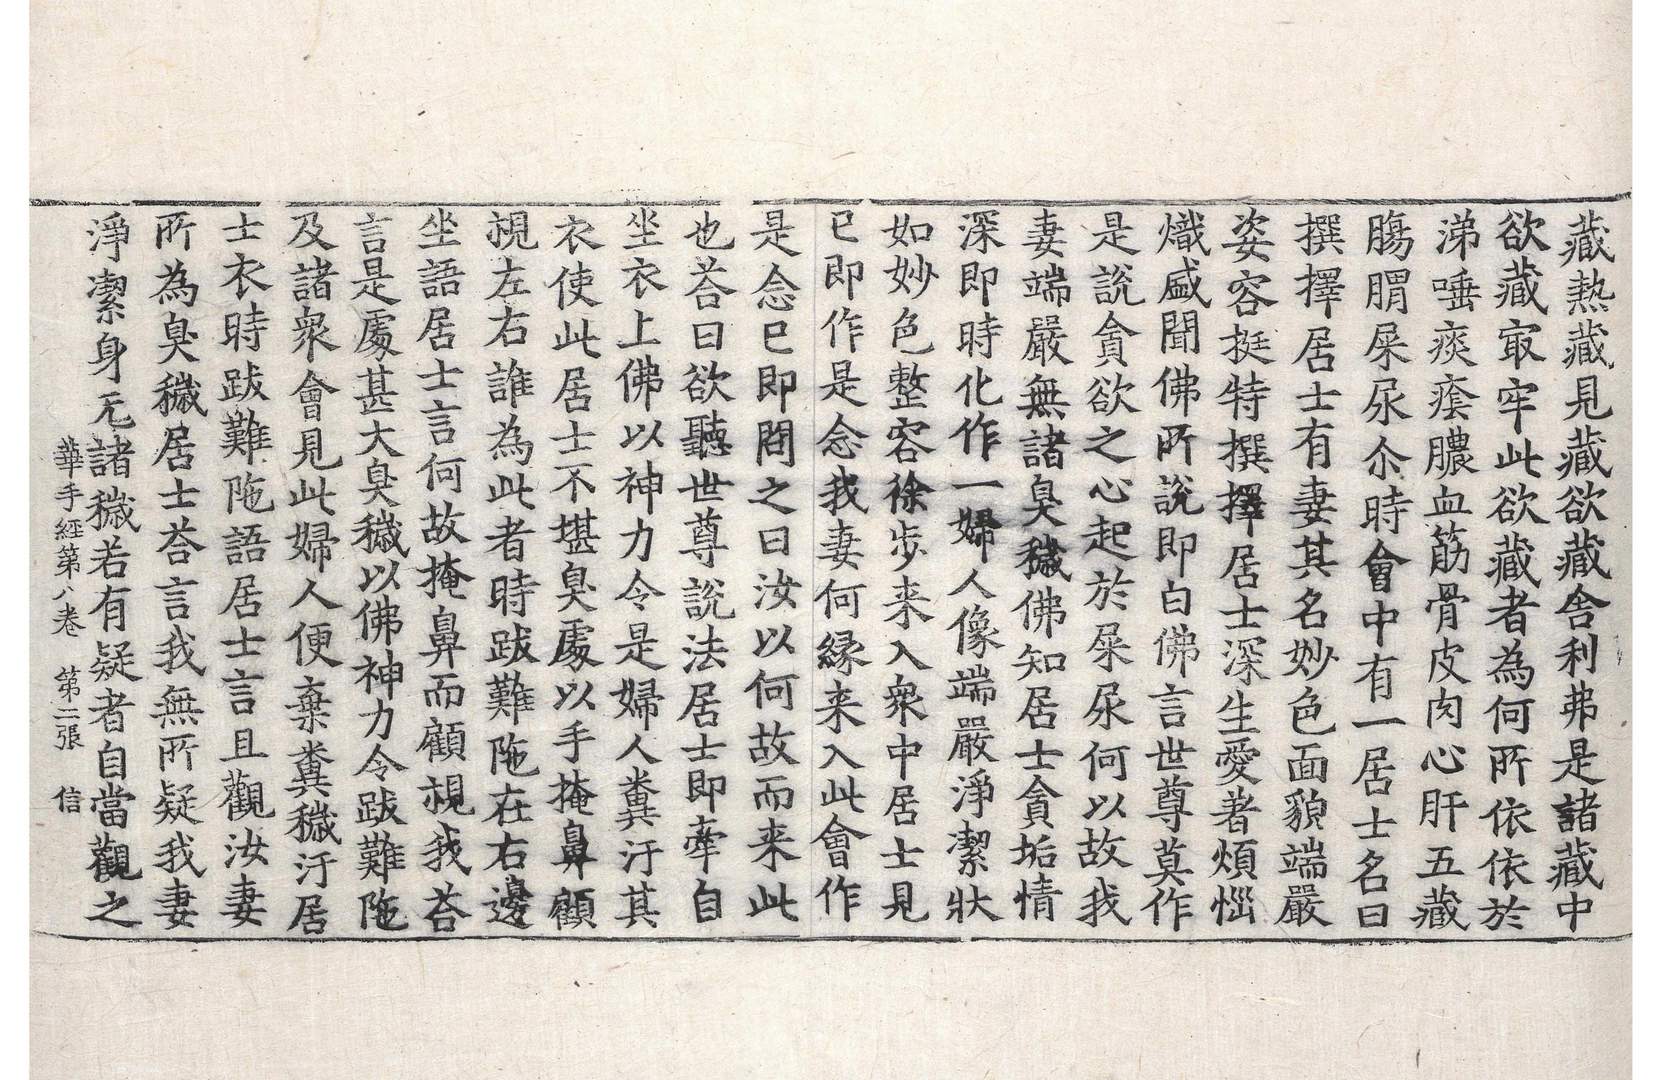 藏熱藏見藏欲藏舍利弗是諸藏中
欲藏冣牢此欲藏者為何所依依於
涕唾痰癊膿血筋骨皮肉心肝五藏
膓胃屎尿尒時會中有一居士名曰
撰擇居士有妻其名妙色面貌端嚴
姿容挺特撰擇居士深生愛著煩惱
熾盛聞佛所說即白佛言世尊莫作
是說貪欲之心起於屎尿何以故我
妻端嚴無諸臭穢佛知居士貪垢情
深即時化作一婦人像端嚴淨潔狀
如妙色整容徐步来入衆中居士見
已即作是念我妻何縁来入此會作
是念已即問之曰汝以何故而来此
也荅曰欲聽世尊說法居士即牽自
坐衣上佛以神力令是婦人糞汙其
衣使此居士不堪臭處以手掩鼻顧
視左右誰為此者時跋難陁在右邊
坐語居士言何故掩鼻而顧視我荅
言是處甚大臭穢以佛神力令跋難陁
及諸衆會見此婦人便棄糞穢汙居
士衣時跋難陁語居士言且觀汝妻
所為臭穢居士荅言我無所疑我妻
淨潔身无諸穢若有疑者自當觀之
華手經第八卷 第二張 信